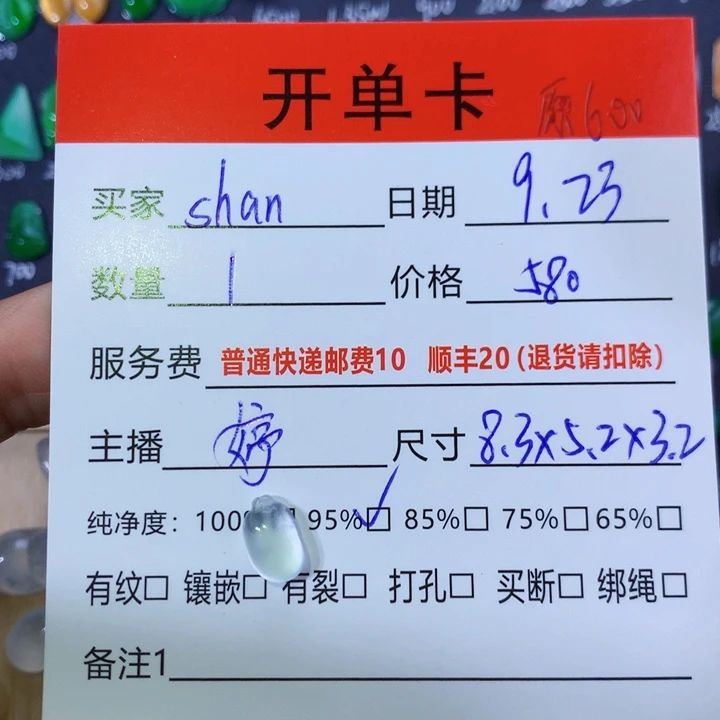 开单卡 原600
买家 shan 日期 9.23
数量 1 价格 580
服务费 普通快递邮费10 顺丰20(退货请扣除)
主播 婷 尺寸 8.3×5.2×3.2
纯净度: 100 □ 95%☑ 85%□ 75%□ 65%□
有纹□ 镶嵌□ 有裂□ 打孔□ 买断□ 绑绳□
备注1
700